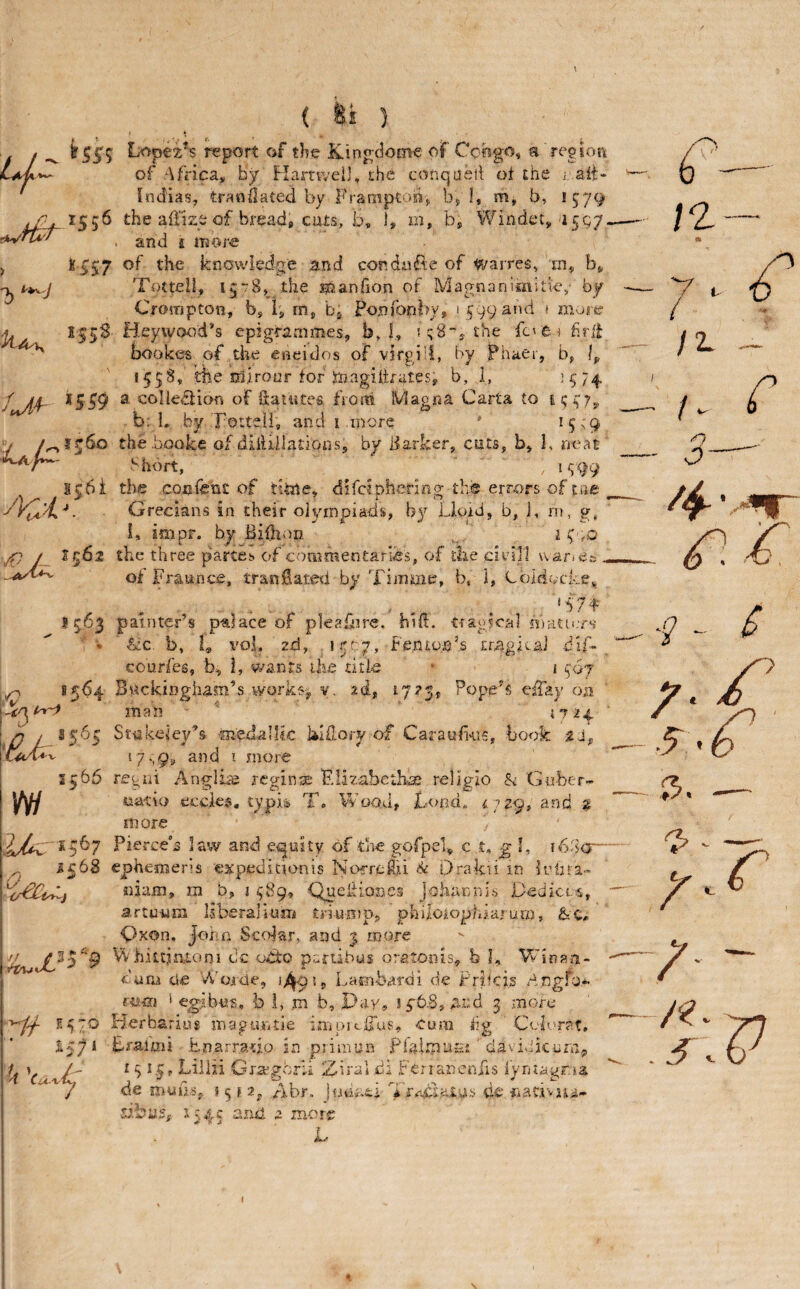 ( 81 )
1555 Lopez's report of the Kingdome of Congo, a region
of Africa, by Hartwell, the conquest of the
Indias, translated by Frampton, b, l, m, b, 1579
1556 the assize of bread, cuts, b, l, m, b, Windet, 1597
and 1 more
1557 of the knowledge and conducte of warres, m, b,
Tottell, 1578, the mansion of Magnanimitie, by
Crompton, b, l, m, b, Ponsonby, 1599 and 1 more
1558 Heywood's epigrammes, b, l, 158 , the first
bookes of the eneidos of virgill, by Phaer, b, l,
1558, the mirour for magistrates, b, l, 1574
1559 a collection of statutes from Magna Carta to 1557,
b. l. by Tottell, and 1 more 1559
1560 the booke of distillations, by Barker, cuts, b, l, neat
Short, 1599
1561 the consent of time, disciphering the errors of the
Grecians in their olympiads, by Lloid, b, l, m, g,
l, impr. by Bishop 1590
1562 the three partes of commentaries, of the civill warres
of Fraunce, translated by Timme, b, l, Coldocke,
1574
1563 painter's palace of pleasure. hist. tragical matters
&c b, l, vol. 2d, 1567, Fenton's tragical dis-
courses, b, l, wants the title 1567
1564 Buckingham's works, v. 2d, 1723, Pope's essay on
man 1724
1565 Stukeley's medallic history of Carausius, book 2d,
1759, and 1 more
1566 regni Angliæ reginæ Elizabethæ religio & Guber-
natio eccles. typis T. Wood, Lond. 1729, and 2
more
1567 Pierce's law and equity of the gospel, c t, g l, 1680
1568 ephemeris expeditionis Norresii & Drakii in lusita-
niam, m b, 1589, Questiones Johannis Dedicus,
artuum liberalium triump, philosophiarum, &c.
Oxon. John Scolar, and 3 more
1569 Whittintoni de octo partibus oratonis, b l, Winan-
dum de Worde, 1491, Lambardi de Priscis Anglo-
rum legibus, b l, m b, Day, 1568, and 3 more
1570 Herbarius maguntie impressus, cum fig Colorat.
1571 Erasmi Enarratio in primun Psalmum davidicum,
1515, Lillii Gregorii Ziraldi Ferranensis syntagma
de musis, 1512, Abr. Judaei Tractatus de nativita-
tibus, 1545 and 2 more
L
6
12
7 . 6
12
1 . 6
3
4 .
6 . 6
9 . 6
7 . 6
5 . 6
3 .
3 .
7 . 6
7 .
12 .
5 . 6